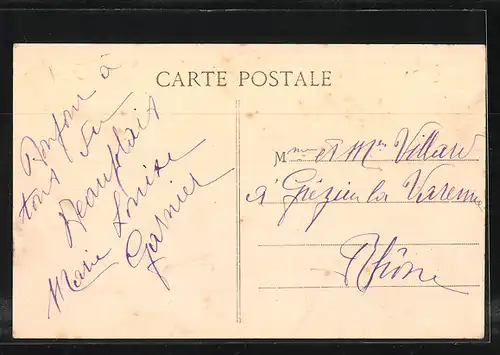 CARTE POSTALE
Bonjour à
tous du
Beaujolais
Marie Louise
Garnier
Mme et Mr Villard
à Grézieu la Varenne
Rhône